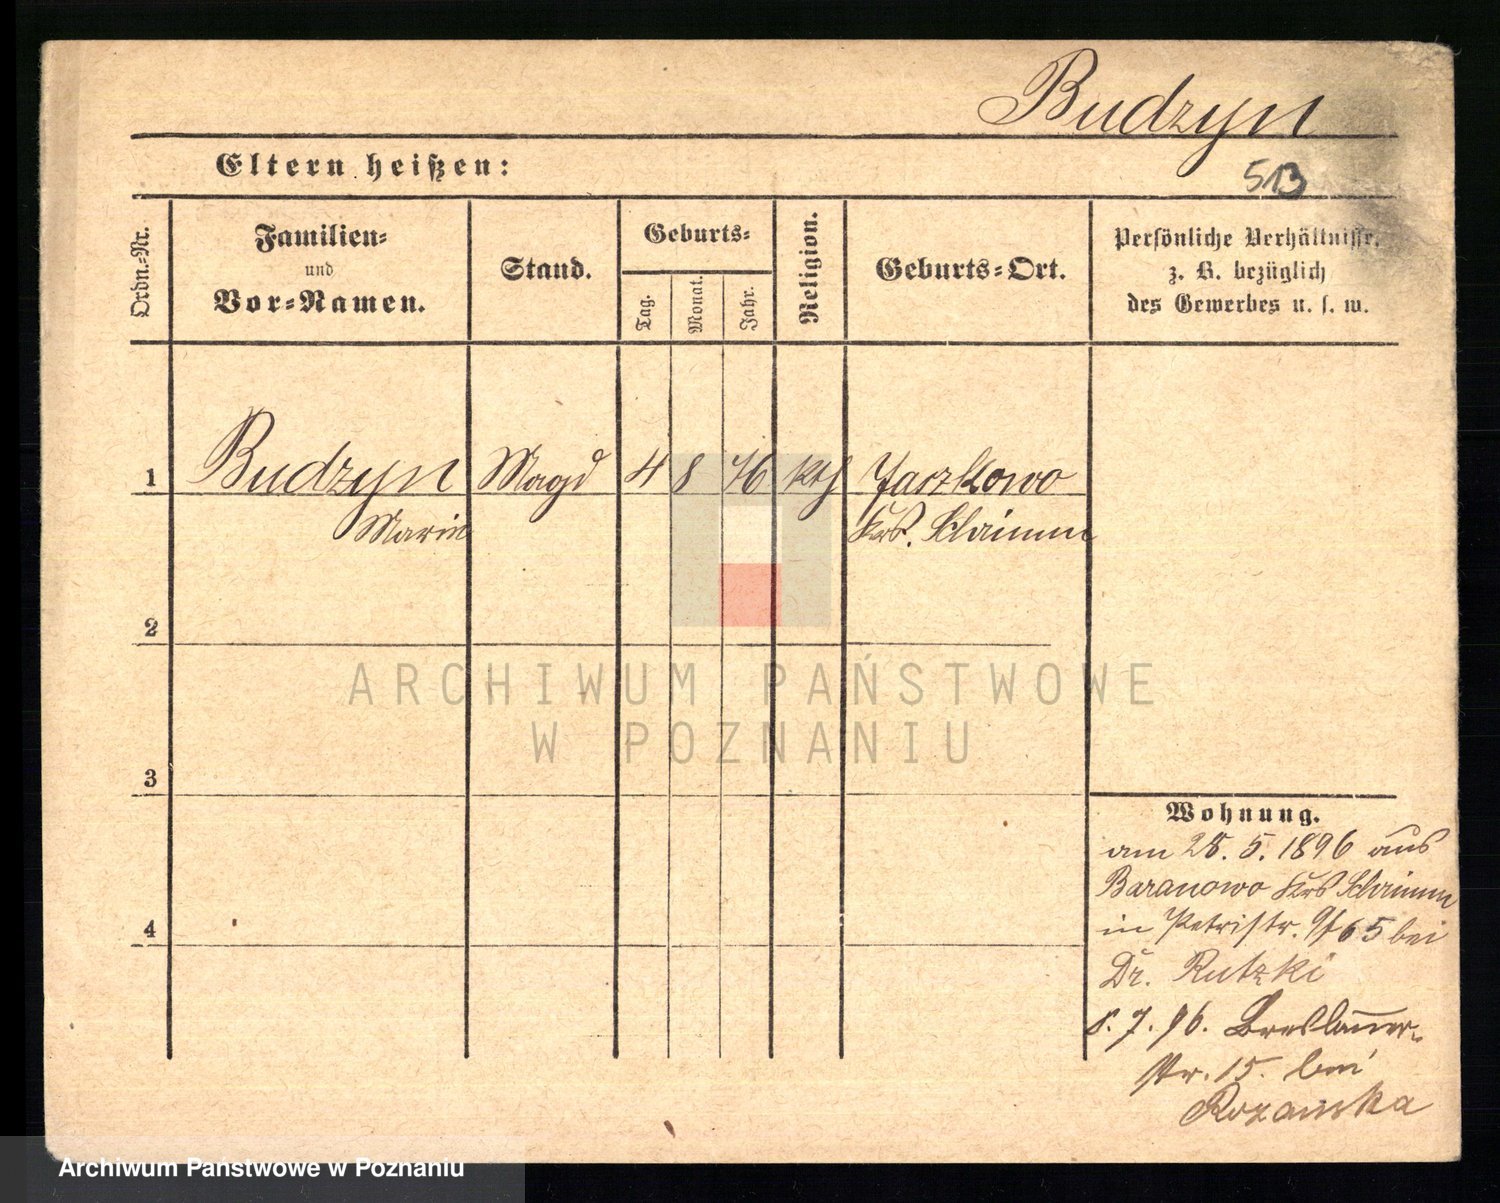 Budzyn
Eltern heißen:
513
Ordn.-Nr.
Familien-
und
Vor-Namen.
Stand.
Geburts-
Tag.
Monat.
Jahr.
Religion.
Geburts-Ort.
Persönliche Verhältnisse,
z. B. bezüglich
des Gewerbes u. s. w.
1 Budzyn Magd 4 8 76 kth Jaczkowo
Marie Krs. Schrimm
2
ARCHIWUM PAŃSTWOWE
W POZNANIU
3
Wohnung.
am 28. 5. 1896 aus
Baranowo Krs Schrimm
in Petristr. 65 bei
4
Dr. Rutzki
8. 7. 96. Breslauer-
str. 15. bei
Rozanska
Archiwum Państwowe w Poznaniu